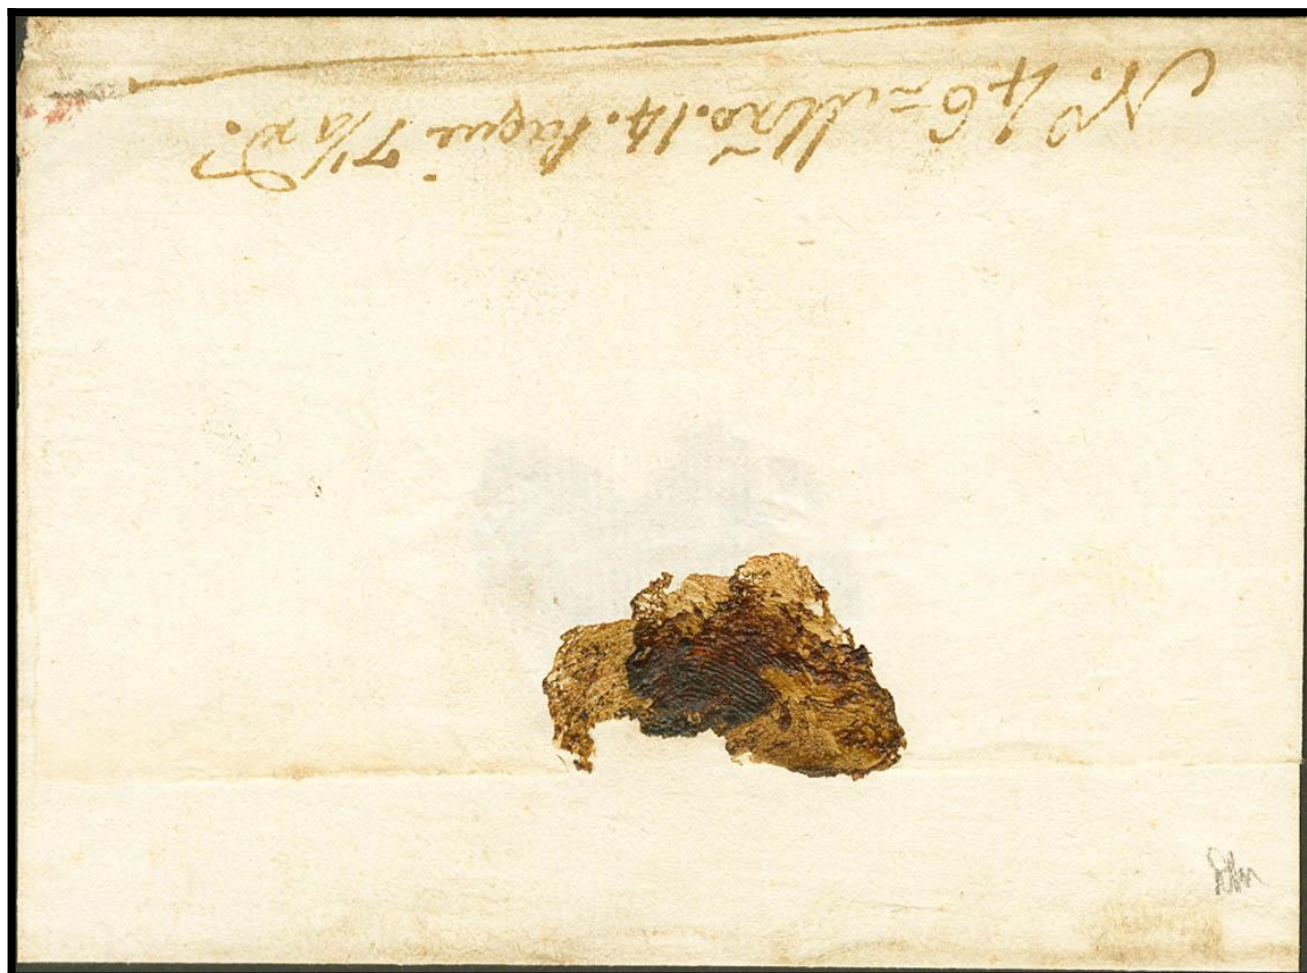 Nº 146 = Mzo. 14. pagué 7½ rs.